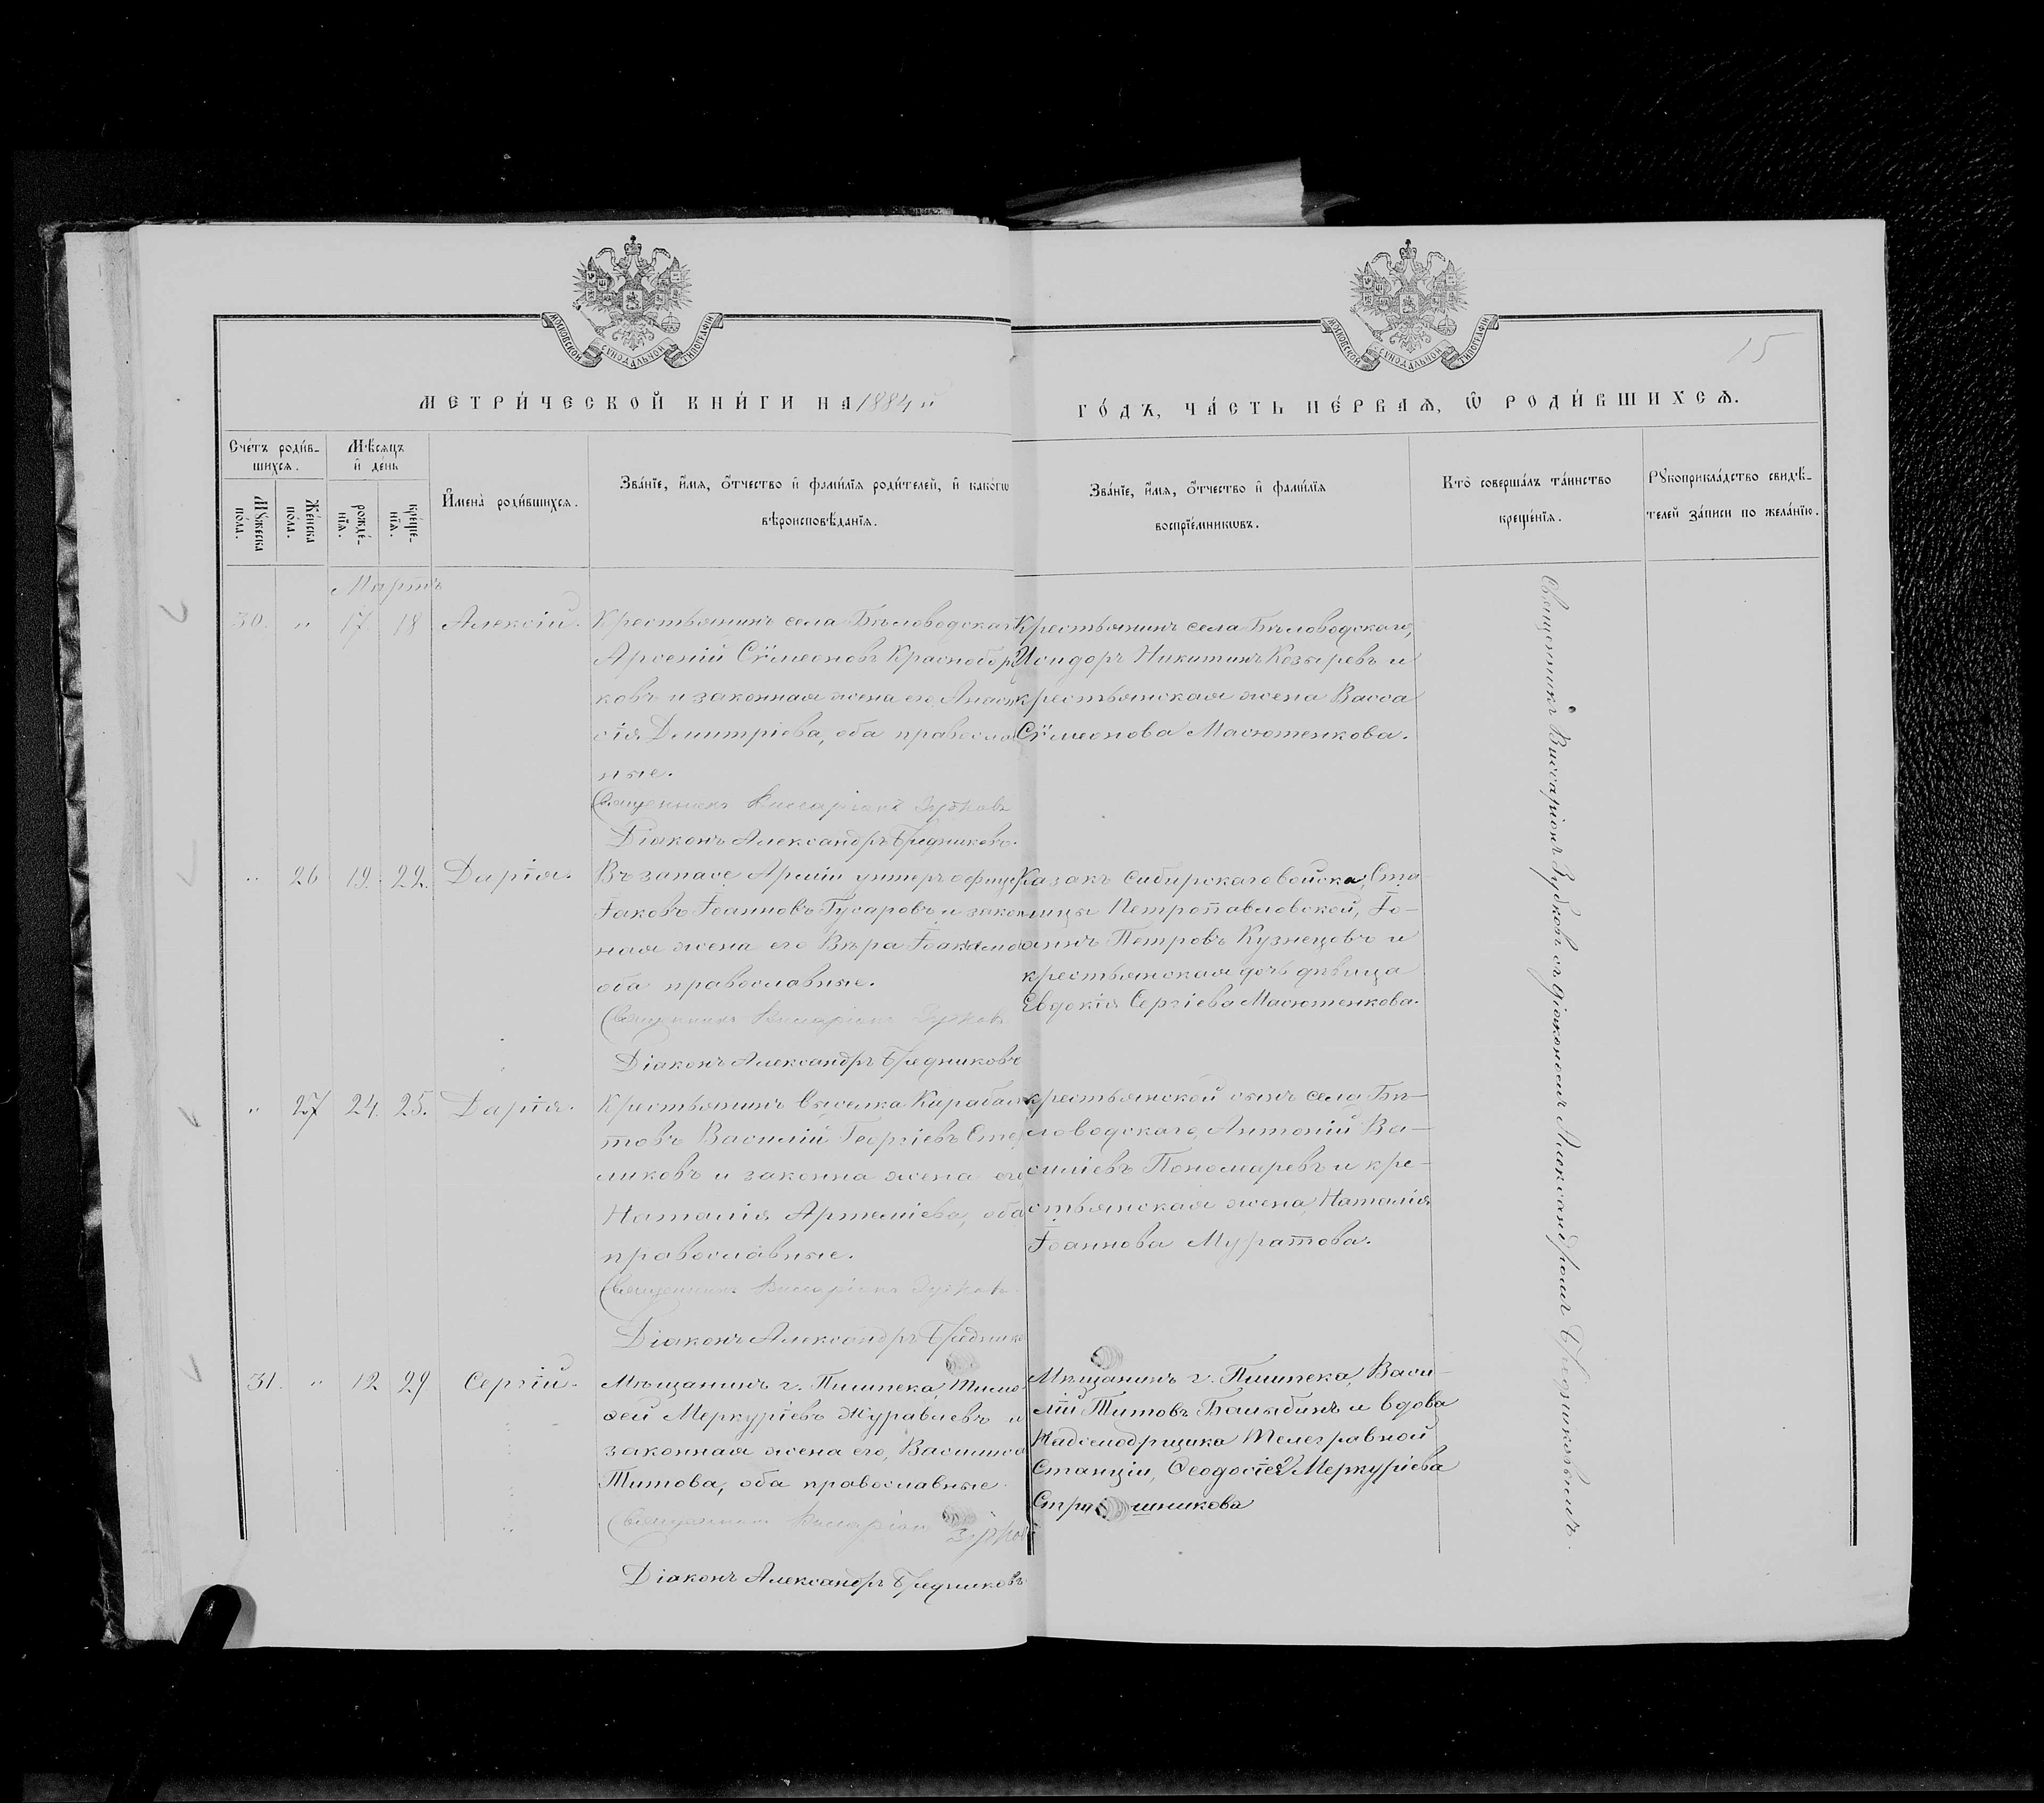 МОСКОВСКОЙ СѴНОДАЛЬНОЙ ТИПОГРАФІИ
МОСКОВСКОЙ СѴНОДАЛЬНОЙ ТИПОГРАФІИ
15
МЕТРИ́ЧЕСКОЙ КНИ́ГИ НА 1884 й
ГО́ДЪ, ЧА́СТЬ ПЕ́РВАЯ, Ѡ РОДИ́ВШИХСЯ.
Сче́тъ роди́в-
шихся.
Мѣ́сяцъ
и де́нь
Мꙋ́жеска
по́ла.
Же́нска
по́ла.
рожде́-
нїя.
креще́-
нїя.
Имена̀ роди́вшихся.
Зва́нїе, и́мя, о́тчество и фами́лїя роди́телей, и како́гѡ
вѣроисповѣ́данїя.
Зва́нїе, и́мя, о́тчество и фами́лїя
воспрїе́мникѡвъ.
Кто̀ соверша́лъ та́инство
креще́нїя.
Рꙋкоприкла́дство свидѣ́-
телей за́писи по жела́нїю.
Мартъ
30. " 17 18 Алексій.
Крестьянинъ села Бѣловодскаг
Арсеній Сѵмеоновъ Красноборо
ковъ и законная жена его Анаст
сія Димитріева, оба правосла
ные.
Священникъ Виссаріонъ Зубковъ
Діаконъ Александръ
Крестьянинъ села Бѣловодскаго,
Исидоръ Никитинъ Козыревъ и
крестьянская жена Васса
Сѵмеонова Масютенкова.
" 26 19. 22. Дарія.
Въ запасе Арміи унтеръ офице
Іаковъ Іоанновъ Гусаровъ и закон
ная жена его Вѣра
оба православные.
Священникъ Виссаріонъ Зубковъ
Діаконъ Александръ
Казакъ Сибирскаго войска, Ста-
ницы Петропавловской, Іо-
аннъ Петровъ Кузнецовъ и
крестьянская дочь дѣвица
Евдокія Сергіева Масютенкова.
" 27 24. 25. Дарія.
Крестьянинъ выселка Карабал
товъ Василій Георгіевъ
ликовъ и законна жена его
Наталія Артеміева, оба
православные.
Священникъ Виссаріонъ Зубковъ
Діаконъ Александръ
крестьянской сынъ села Бѣ-
ловодскаго, Антоній Ва-
силіевъ Пономаревъ и кре-
стьянская жена Наталія
Іоаннова Муратова.
31. " 12 29 Сергій.
Мѣщанинъ г. Пишпека, Тимо-
ѳей Меркуріевъ Журавлевъ и
законная жена его, Василиса
Титова, оба православные.
Священникъ Виссаріонъ Зубковъ
Діаконъ Александръ
Мѣщанинъ г. Пишпека, Васи-
лій Титовъ Балыбинъ и вдова
Надсмотрщика Телегравной
Станціи, Ѳеодосія Меркуріева
Священникъ Виссаріонъ Зубковъ съ діакономъ Александромъ